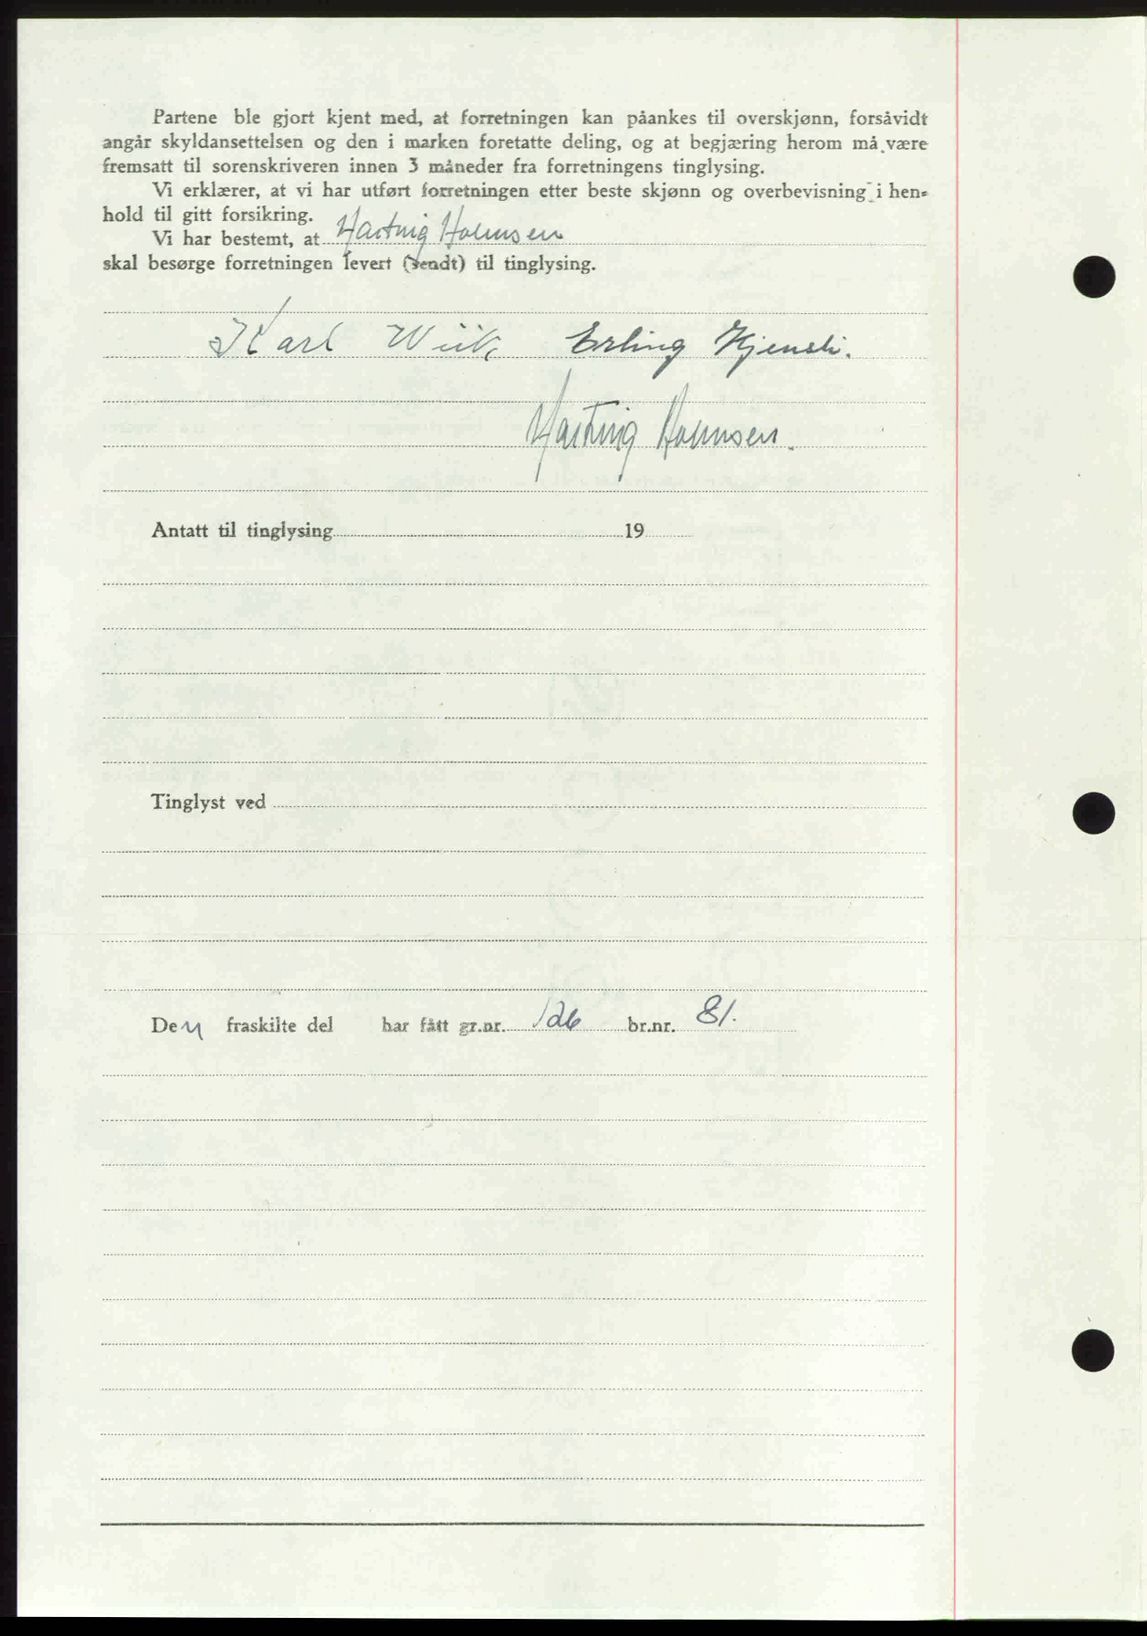 Partene ble gjort kjent med, at forretningen kan påankes til overskjønn, forsåvidt
angår skyldansettelsen og den i marken foretatte deling, og at begjæring herom må være
fremsatt til sorenskriveren innen 3 måneder fra forretningens tinglysing.
Vi erklærer, at vi har utført forretningen etter beste skjønn og overbevisning i hen-
hold til gitt forsikring.
Vi har bestemt, at Hartvig Holmsen
skal besørge forretningen levert (sendt) til tinglysing.
Karl Wiik Erling
Hartvig Holmsen.
Antatt til tinglysing 19
Tinglyst ved
Den fraskilte del har fått gr.nr. 126 br.nr. 81.